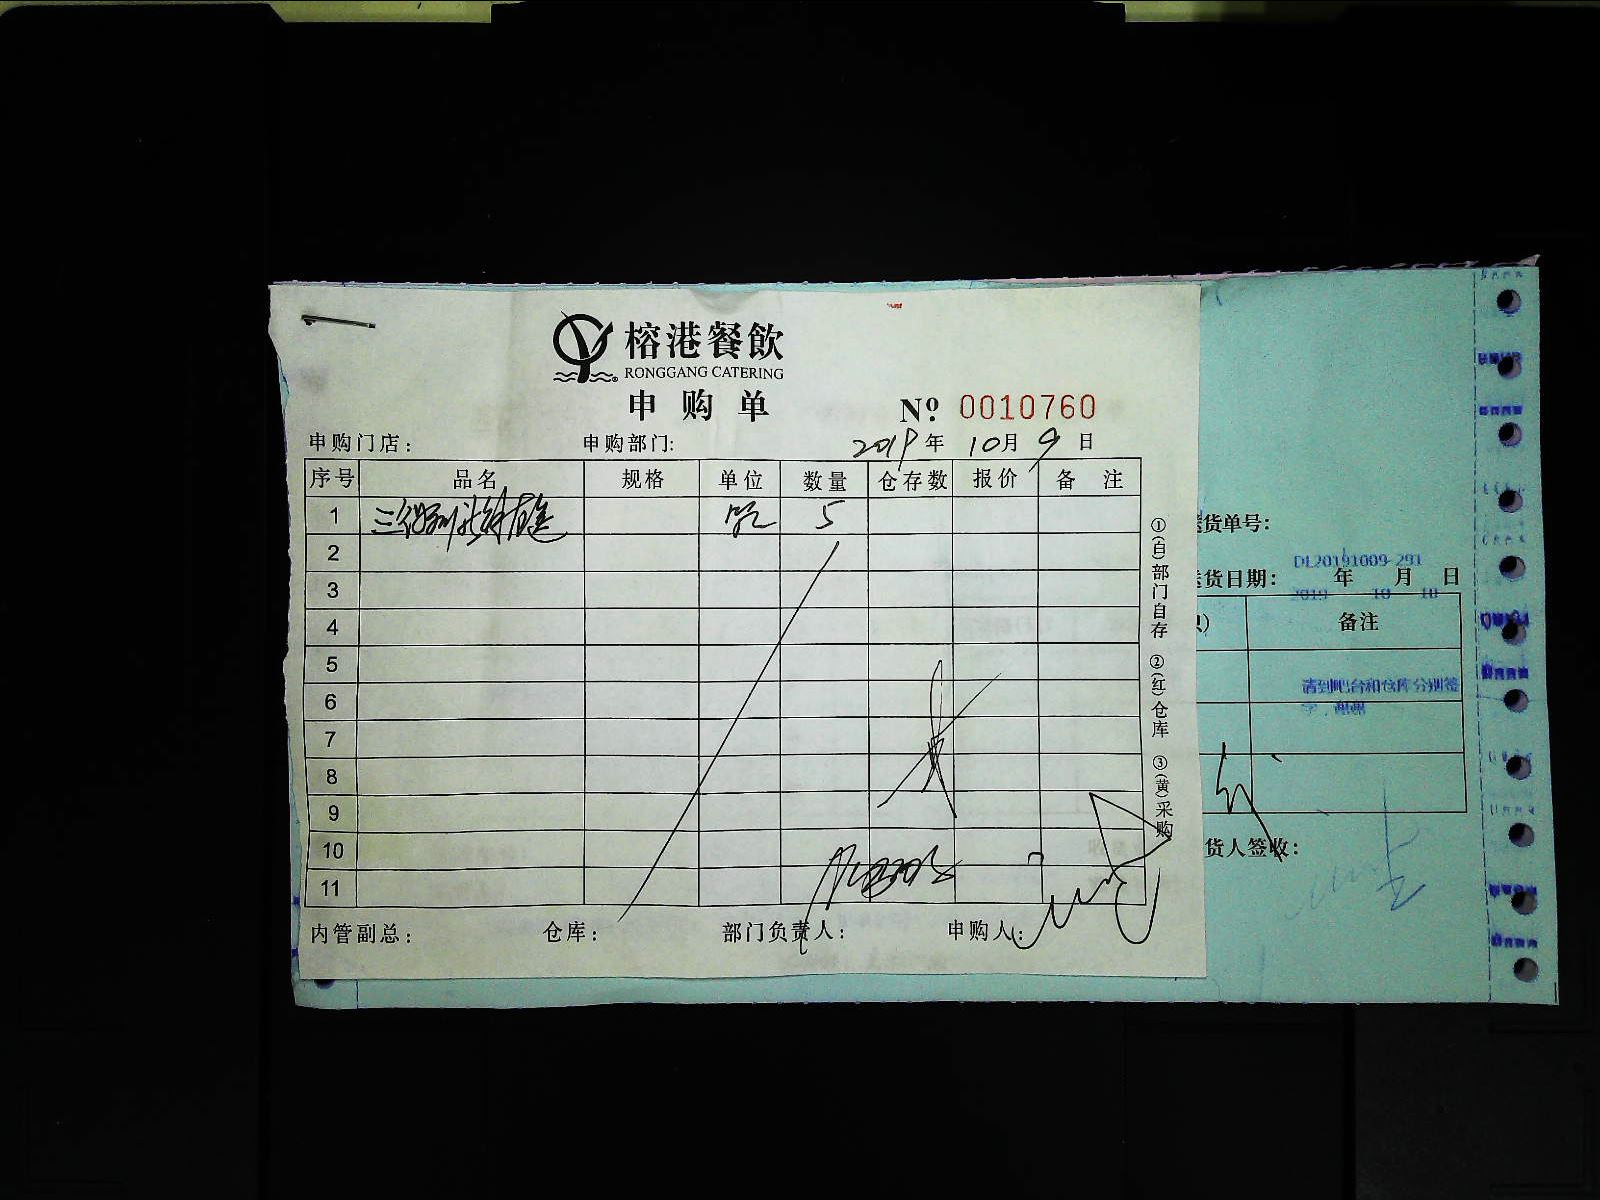 榕港餐飲
RONGGANG CATERING
申购单
Nº 0010760
申购门店: 申购部门: 2019年 10月 9日
序号 品名 规格 单位 数量 仓存数 报价 备注
1 5
2
3
4
5
6
7
8
9
10
11
内管副总: 仓库: 部门负责人: 申购人:
①(白)部门自存 ②(红)仓库 ③(黄)采购
送货单号:
DL20191009-291
送货日期: 年 月 日
2019 10 10
备注
请到吧台和仓库分别签
字,谢谢
货人签收: